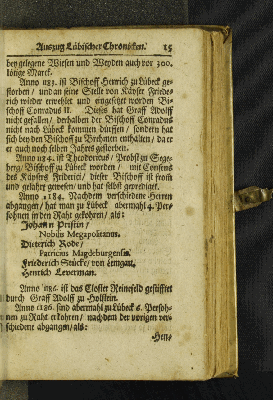 Auszug Lübischer Chronicken. 15
bey gelegene Wiesen und Weyden auch vor 300.
lötige Marck.
Anno 1183. ist Bischoff Henrich zu Lübeck ge-
storben / und an seine Stelle von Käyser Friede-
rich wieder erwehlet und eingesetzet worden Bi-
schoff Conradus II. Dieses hat Graff Adolff
nicht gefallen / derhalben der Bischoff Conradus
nicht nach Lübeck kommen dürffen / sondern hat
sich bey den Bischoff zu Brehmen enthalten / da er
er auch noch selben Jahres gestorben.
Anno 1184. ist Theodoricus / Probst zu Sege-
berg / Bischoff zu Lübeck worden / mit Consens
des Käysers Friderici / dieser Bischoff ist from
und gelahrt gewesen / und hat selbst geprediget.
Anno 1184. Nachdem verschiedene Herren
abgangen / hat man zu Lübeck abermahl 4. Per-
sohnen in den Raht gekohren / als:
Johann Pristin /
Nobilis Megapolitanus.
Dieterich Rode /
Patricius Magdeburgensis.
Friederich Stücke / von Lemgau.
Henrich Leverman.
Anno 1186. ist das Closter Reinefeld gestifftet
durch Graff Adolff zu Holstein.
Anno 1186. sind abermahl zu Lübeck 6. Persoh-
nen zu Raht erkohren / nachdem der vorigen ver-
schiedene abgangen / als:
Hen-